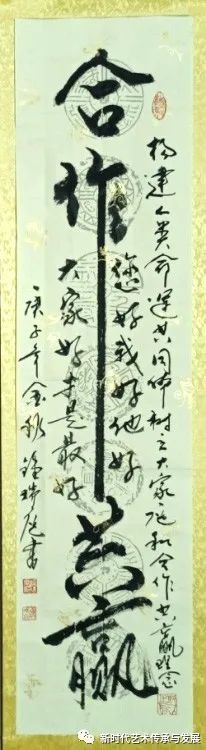 构建人类命运共同体树立大家庭和合作共赢理念
合作共赢
您好我好他好
大家好才是最好
庚子年金秋 瑞庭书
新时代艺术传承与发展